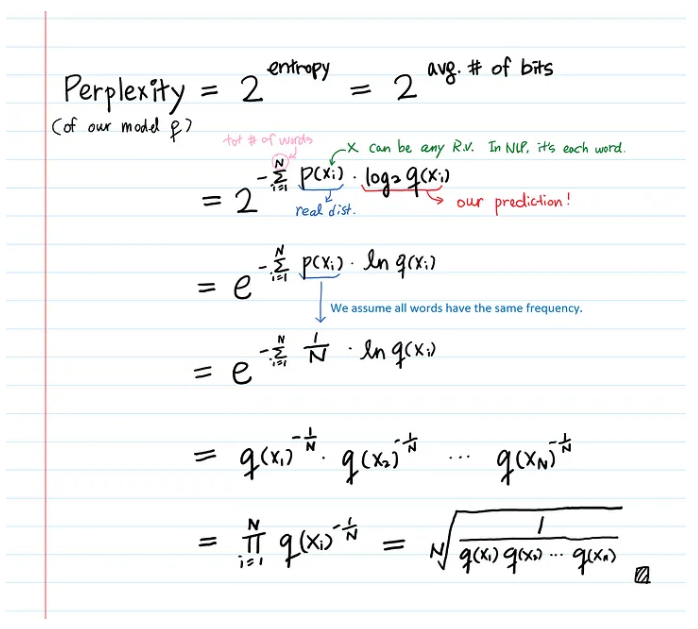 Perplexity = 2^entropy = 2^avg. # of bits
(of our model q)
tot # of words
X can be any R.V. In NLP, it's each word.
= 2^-Σ_{i=1}^{N} p(x_i) · log_2 q(x_i)
real dist.
our prediction!
= e^-Σ_{i=1}^{N} p(x_i) · ln q(x_i)
We assume all words have the same frequency.
= e^-Σ_{i=1}^{N} 1/N · ln q(x_i)
= q(x_1)^-1/N · q(x_2)^-1/N ... q(x_N)^-1/N
= Π_{i=1}^{N} q(x_i)^-1/N = N√(1/(q(x_1) q(x_2) ... q(x_n)))